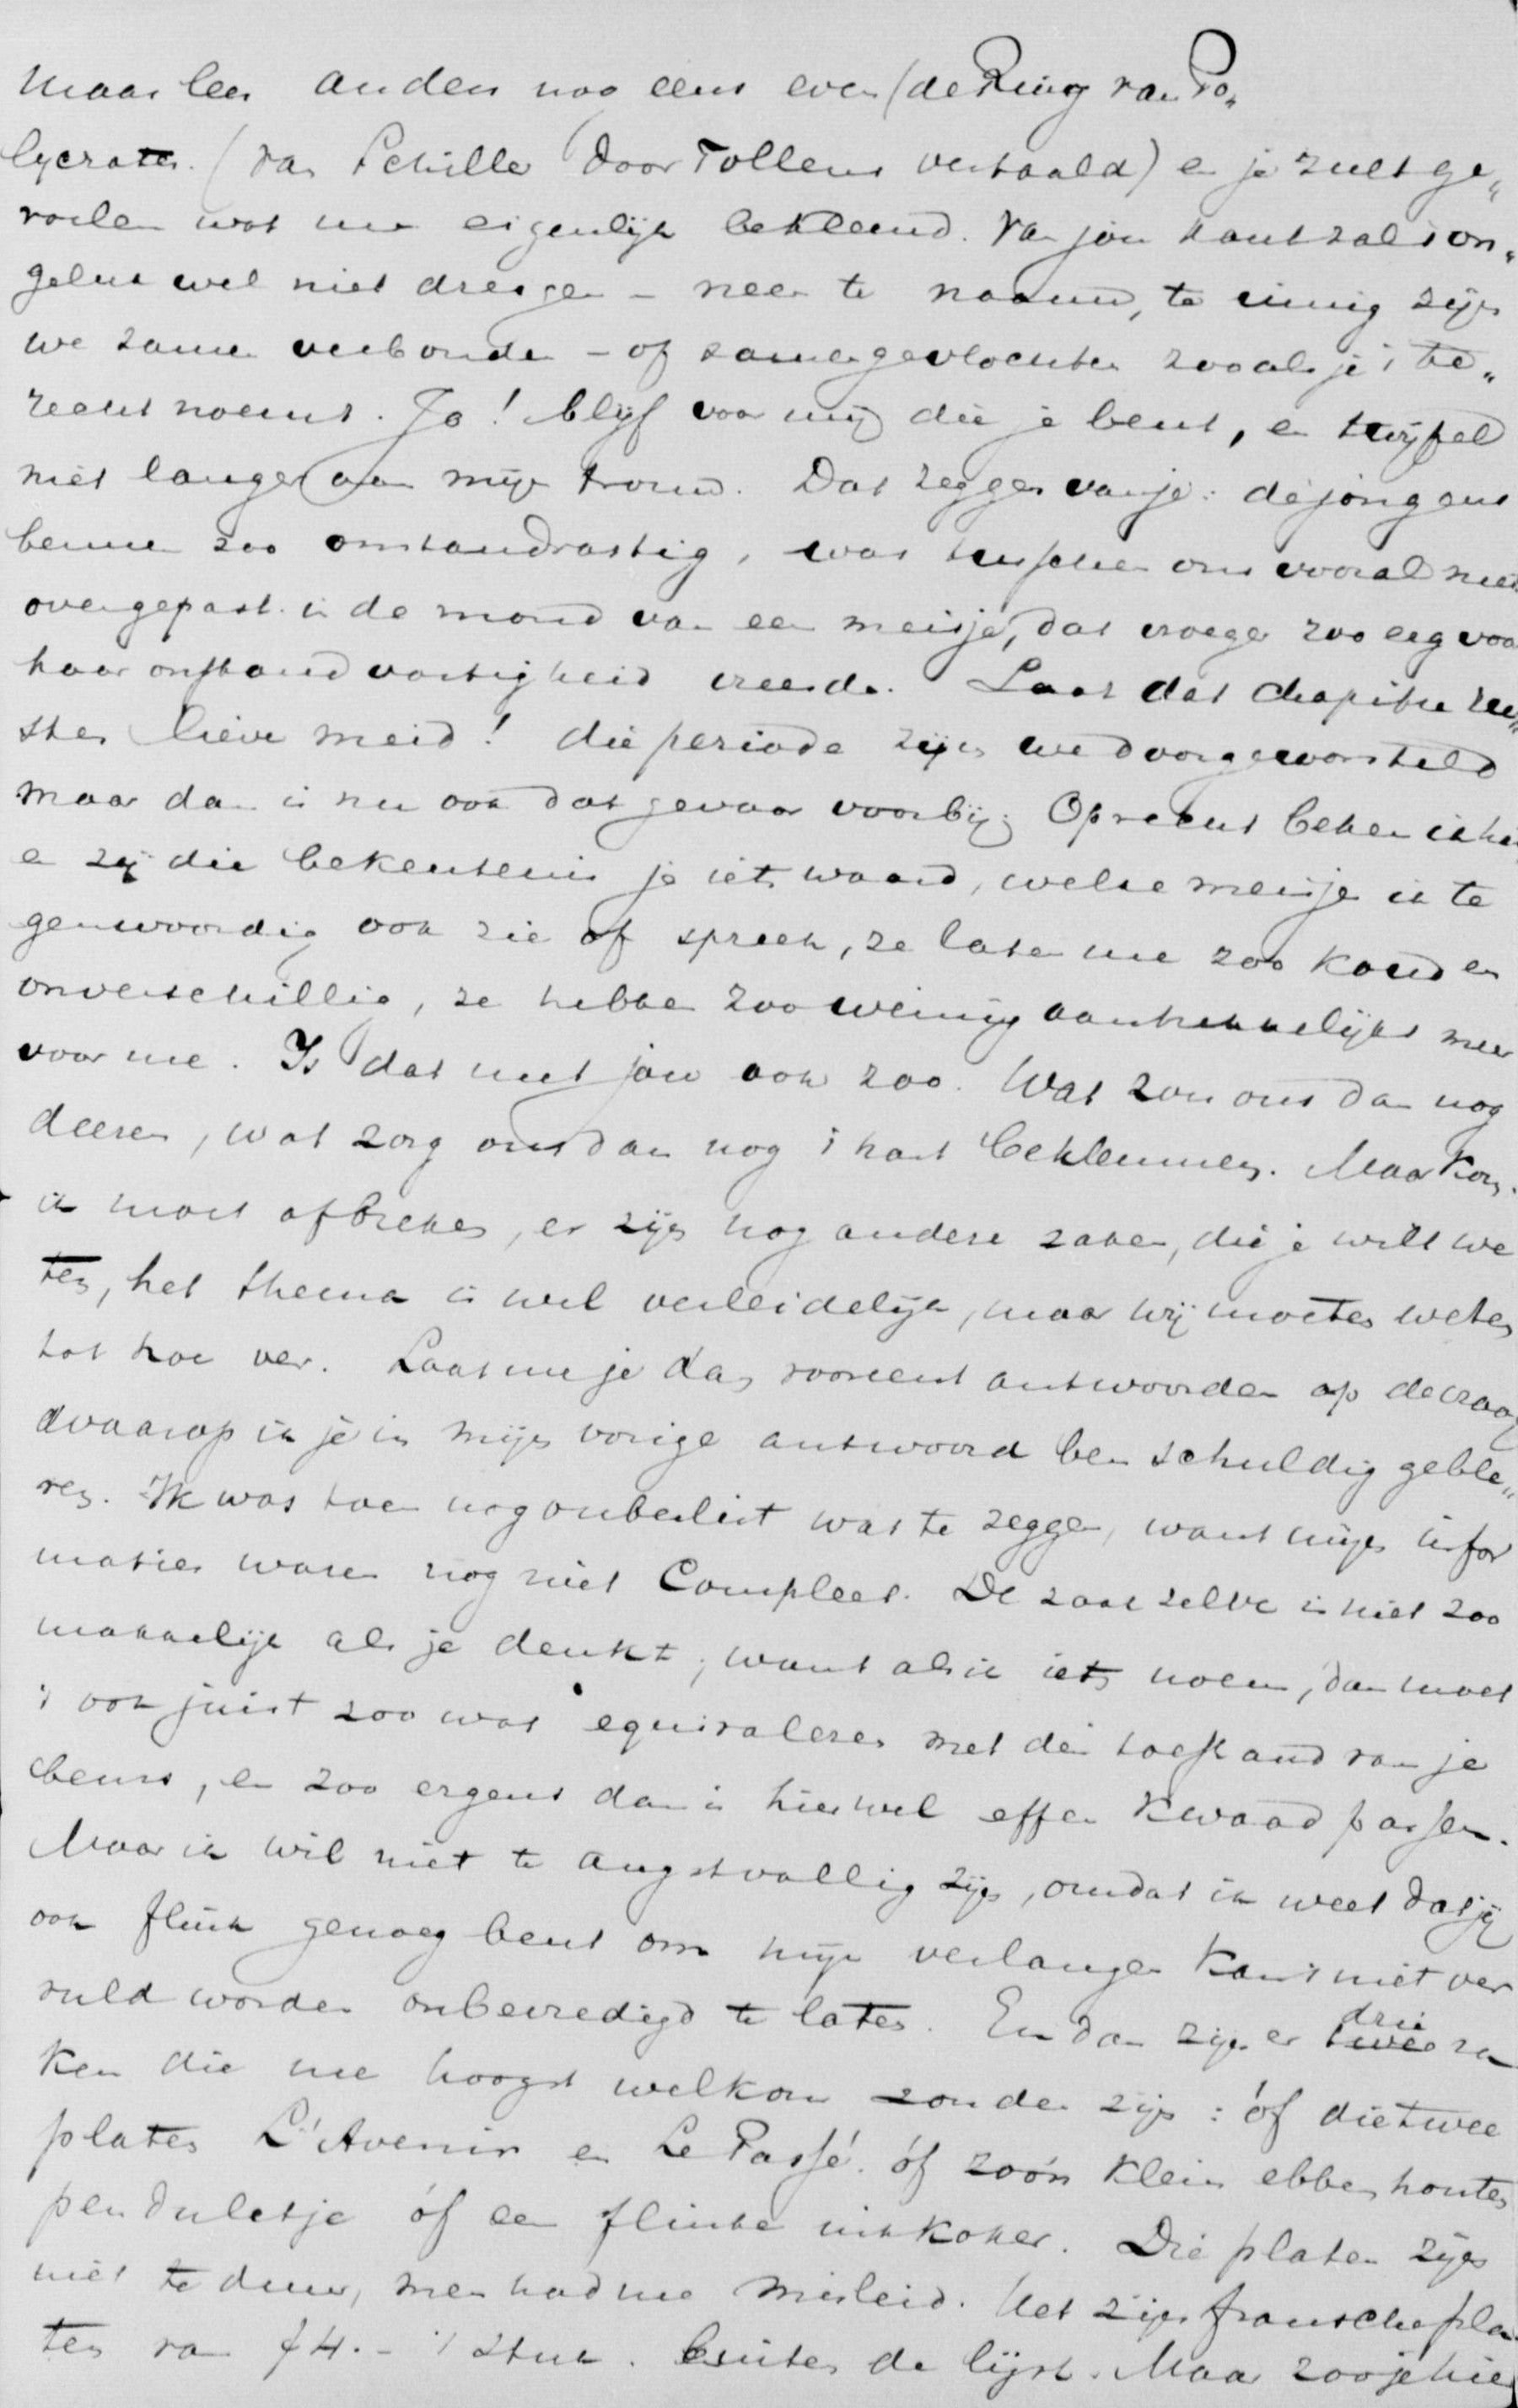 Maar lees anders nog eens even (de Ring van Po„
lycrates. (van Schiller door Tollens vertaald) en je zult ge„
voelen wat me eigenlijk beklemd. Van jou kant zal 't on„
geluk wel niet dreigen – neen te naauw, te innig zijn
we samen verbonden – of samengevlochten zooals je 't te„
recht noemt. Ja! blijf voor mij die je bent, en twijfel
niet langer aan mijn trouw. Dat zeggen van je: de jongens
bennen zoo onstandvastig, was tusschen ons vooral niet
overgepast in de mond van een meisje, dat vroeger zoo erg voor
haar onstandvastigheid vreesde. Laat dat chapitre rus„
ten lieve meid! die periode zijn we doorgeworsteld
maar dan is nu ook dat gevaar voorbij. Oprecht beken ik het
en zij die bekentenis je iets waard, welke meisje ik te
genwoordig ook zie of spreek, ze laten me zoo koud en
onverschillig, ze hebben zoo weinig aantrekkelijks meer
voor me. Is dat met jou ook zoo. Wat zou ons dan nog
deeren, wat zorg ons dan nog 't hart beklemmen. Maar kom.
ik moet afbreken, er zijn nog andere zaken, die je wilt we
ten, het thema is wel verleidelijk, maar wij moeten weten
tot hoe ver. Laat me je dan vooreerst antwoorden op de vraag
dwaarop ik je in mijn vorige antwoord ben schuldig geble„
ven. Ik was toen nog onbeslist wat te zeggen, want mijn infor
maties waren nog niet Compleet. De zaak zelve is niet zoo
makkelijk als je denkt, want als ik iets noem, dan moet
't ook juist zoo wat equivaleren met den toestand van je
beurs, en zoo ergens dan is hier wel effen kwaad passen.
Maar ik wil niet te angstvallig zijn, omdat ik weet dat jij
ook flink genoeg bent om mijn verlangen kan 't niet ver
vuld worden onbevredigd te laten. En dan zijn er twee drie za
ken die me hoogst welkom zouden zijn: óf die twee
platen L'Avenir en Le Passé. óf zoo'n klein ebbenhouten
penduletje óf een flinke inktkoker. Die platen zijn
niet te duur, men had me misleid. Het zijn fransche pla
ten van f4.- 't stuk. buiten de lijst. Maar zoo je hier